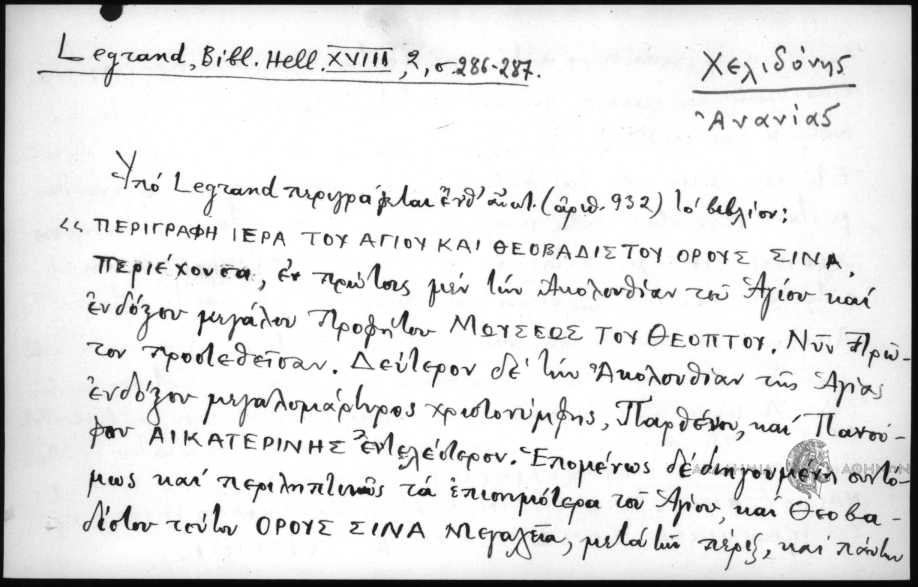 Legrand, Bibl. Hell. XVIII, 2, σ. 286-287.
Χελιδόνης
Ἀνανίας
Ὑπό Legrand περιγράφεται ἐνθ' ἀνωτ. (ἀριθ. 932) τό βιβλίον:
«ΠΕΡΙΓΡΑΦΗ ΙΕΡΑ ΤΟΥ ΑΓΙΟΥ ΚΑΙ ΘΕΟΒΑΔΙΣΤΟΥ ΟΡΟΥΣ ΣΙΝΑ.
Περιέχουσα, ἐν πρώτοις μέν τήν Ἀκολουθίαν τοῦ Ἁγίου καί
ἐνδόξου μεγάλου Προφήτου ΜΩΥΣΕΩΣ ΤΟΥ ΘΕΟΠΤΟΥ. Νῦν πρῶ-
τον προστεθεῖσαν. Δεύτερον δέ τήν Ἀκολουθίαν τῆς Ἁγίας
ἐνδόξου μεγαλομάρτυρος χριστονύμφης, Παρθένου, καί Πανσό-
φου ΑΙΚΑΤΕΡΙΝΗΣ ἐντελέστερον. Ἑπομένως δέ διηγουμένη συντό-
μως καί περιληπτικῶς τά ἐπισημότερα τοῦ Ἁγίου, καί Θεοβα-
δίστου τούτου ΟΡΟΥΣ ΣΙΝΑ Μεγαλεῖα, μετά τῶν πέριξ, καί πάντων
ΑΚΑΔΗΜΙΑ ΑΘΗΝΩΝ